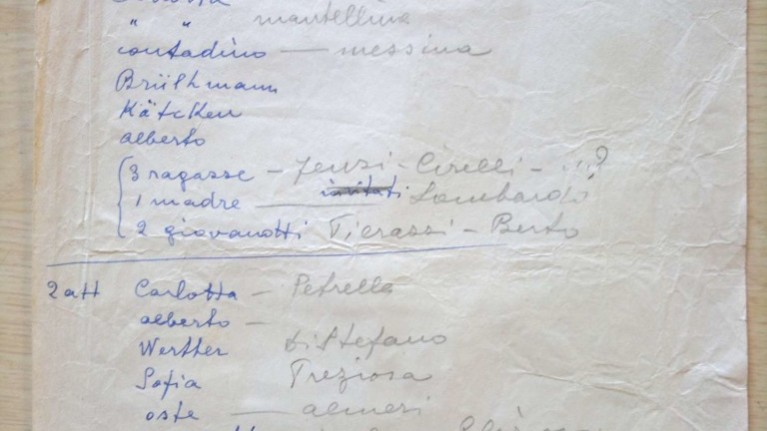 " " mantellina
contadino — messina
Brülhmann
Kätcken
alberto
3 ragasse - Jensi - Cirelli - ...?
1 madre — Lombardo
2 giovanotti - Berto
2 att Carlotta - Petrella
alberto -
Werther di Stefano
Sofia Treziosa
oste — almeri